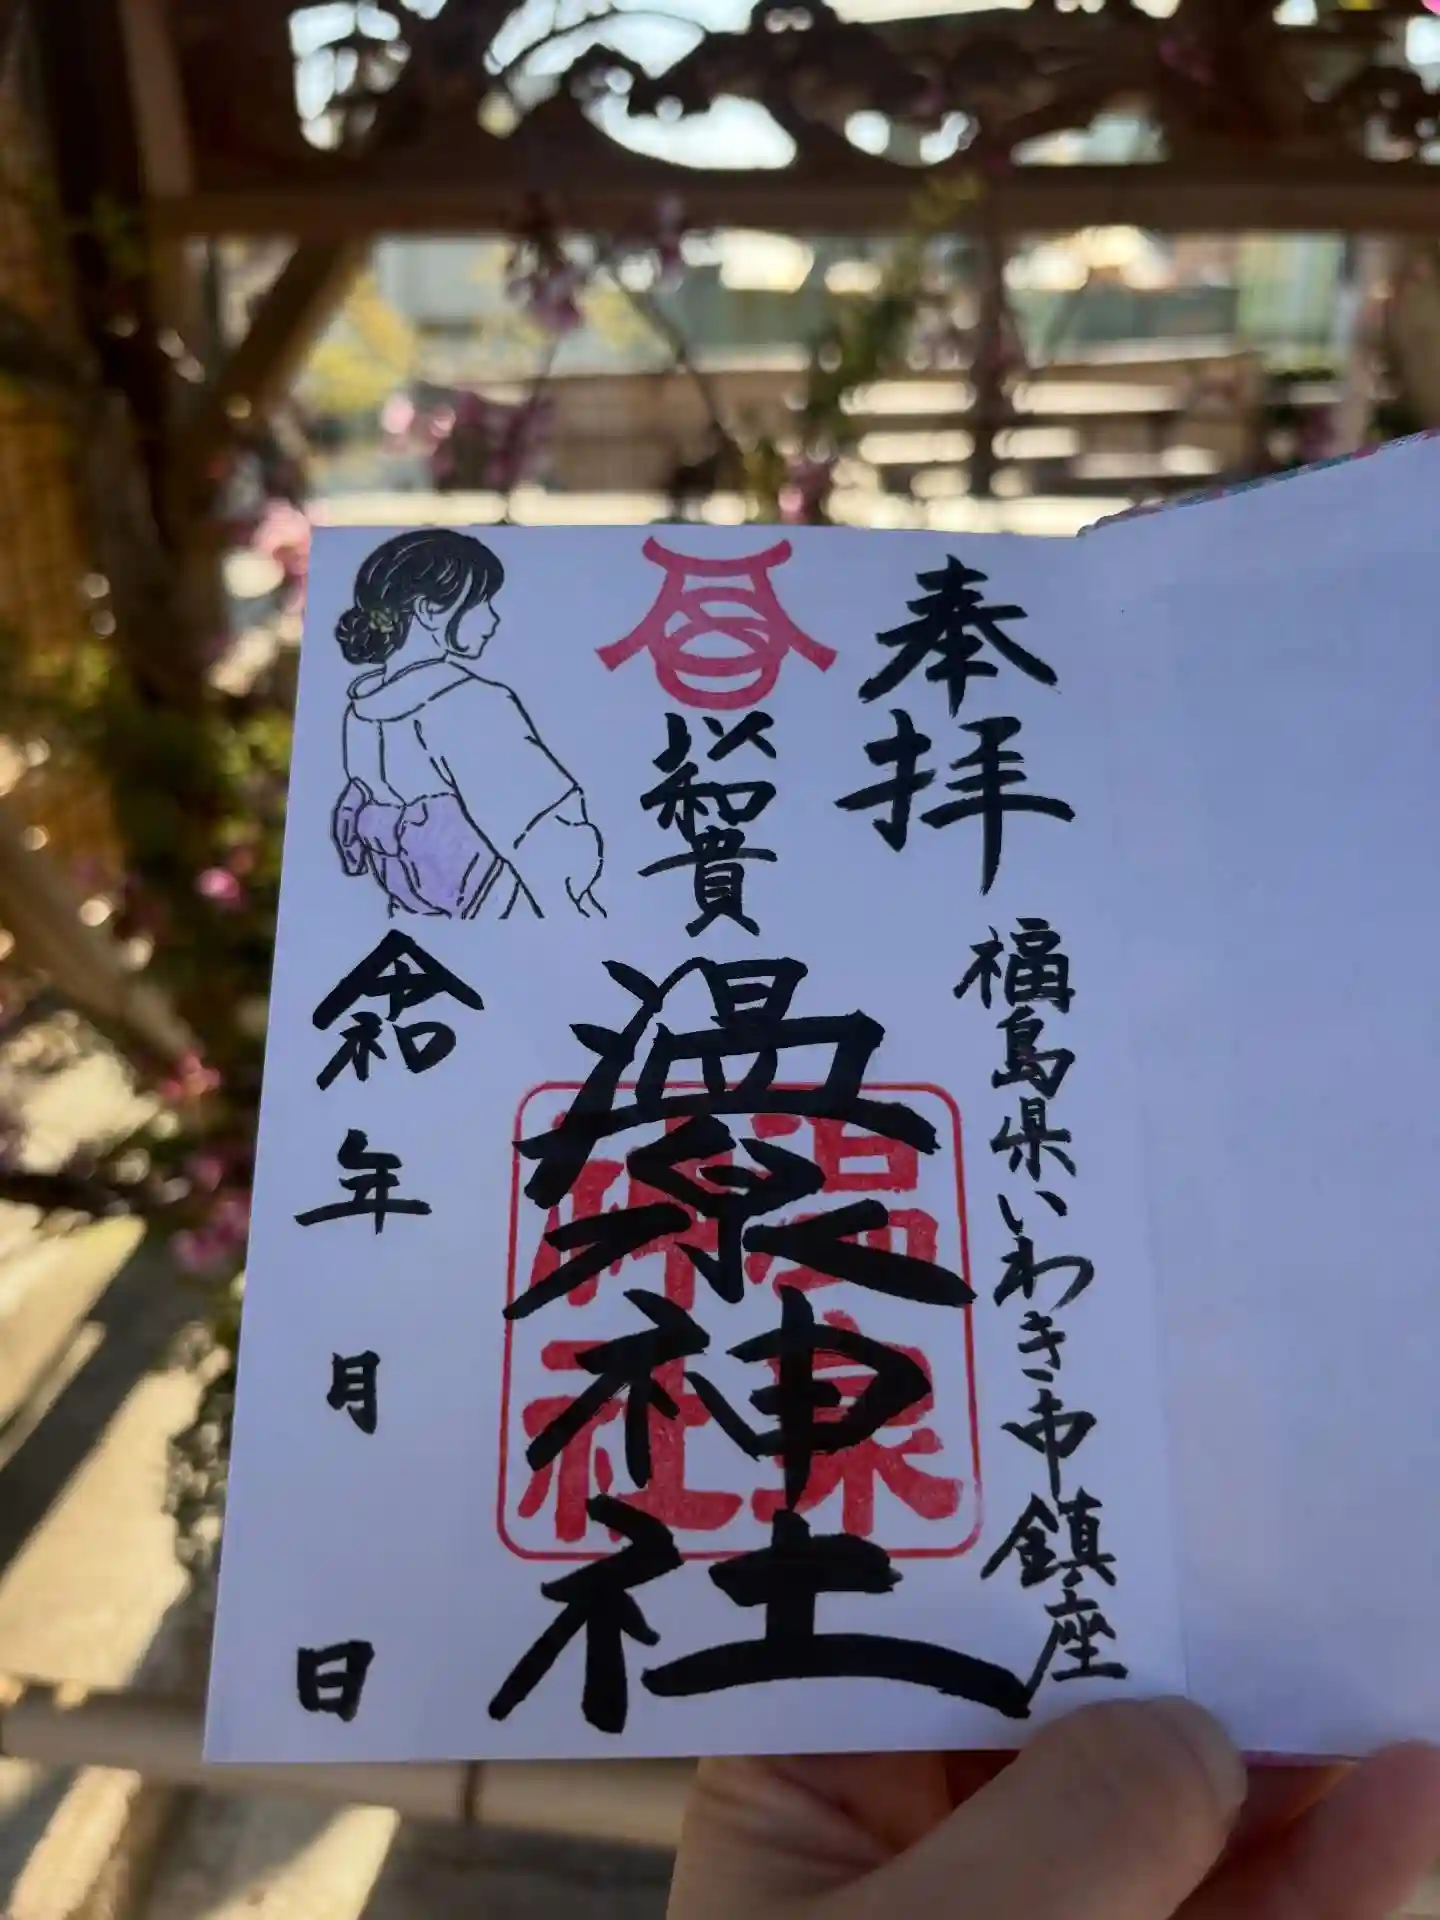 奉拝
福島県いわき市鎮座
以和貴
温泉神社
温泉
神社
令和
年
月
日